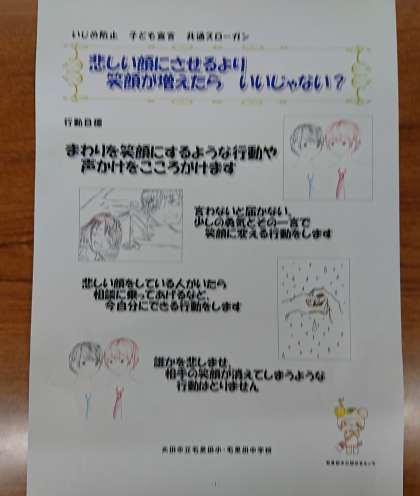 いじめ防止　子ども宣言　共通スローガン
悲しい顔にさせるより
笑顔が増えたら　いいじゃない？
行動目標
まわりを笑顔にするような行動や
声かけをこころがけます
言わないと届かない。
少しの勇気とその一言で
笑顔に変える行動をします
悲しい顔をしている人がいたら
相談に乗ってあげるなど、
今自分にできる行動をします
誰かを悲しませ、
相手の笑顔が消えてしまうような
行動はとりません
太田市立毛里田小・毛里田中学校